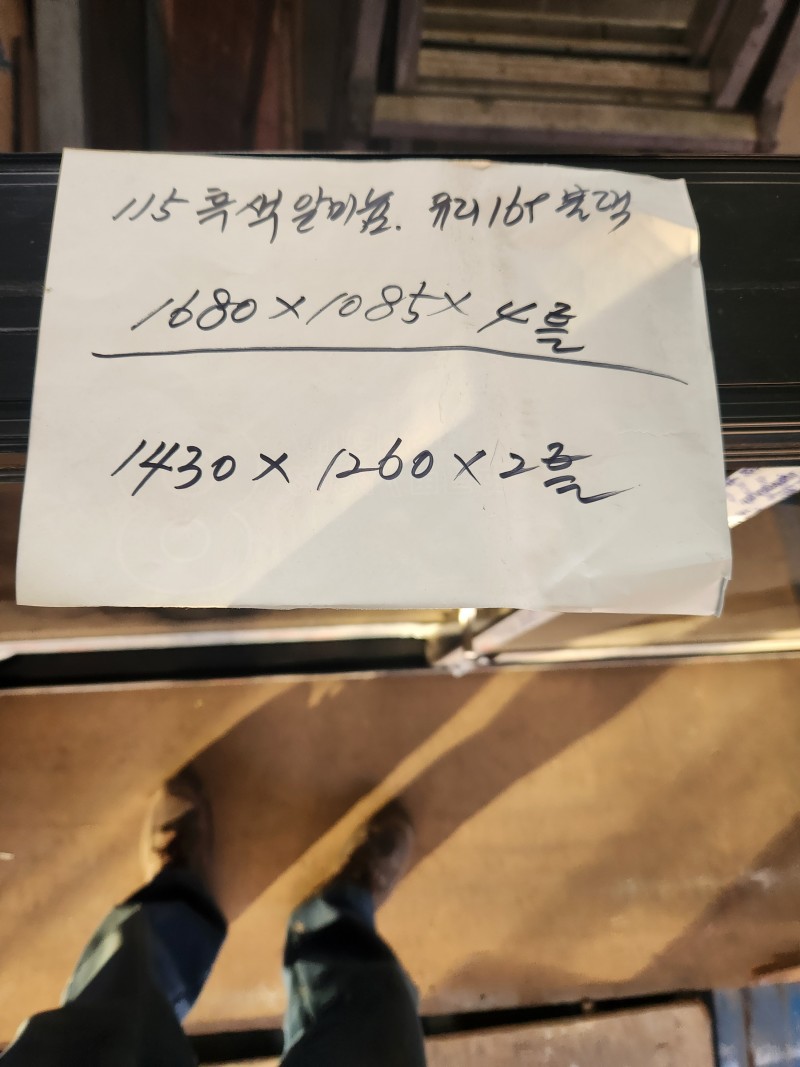 115 흑색 알미늄. 유리 16T 블랙
1680 × 1085 × 4틀
1430 × 1260 × 2틀